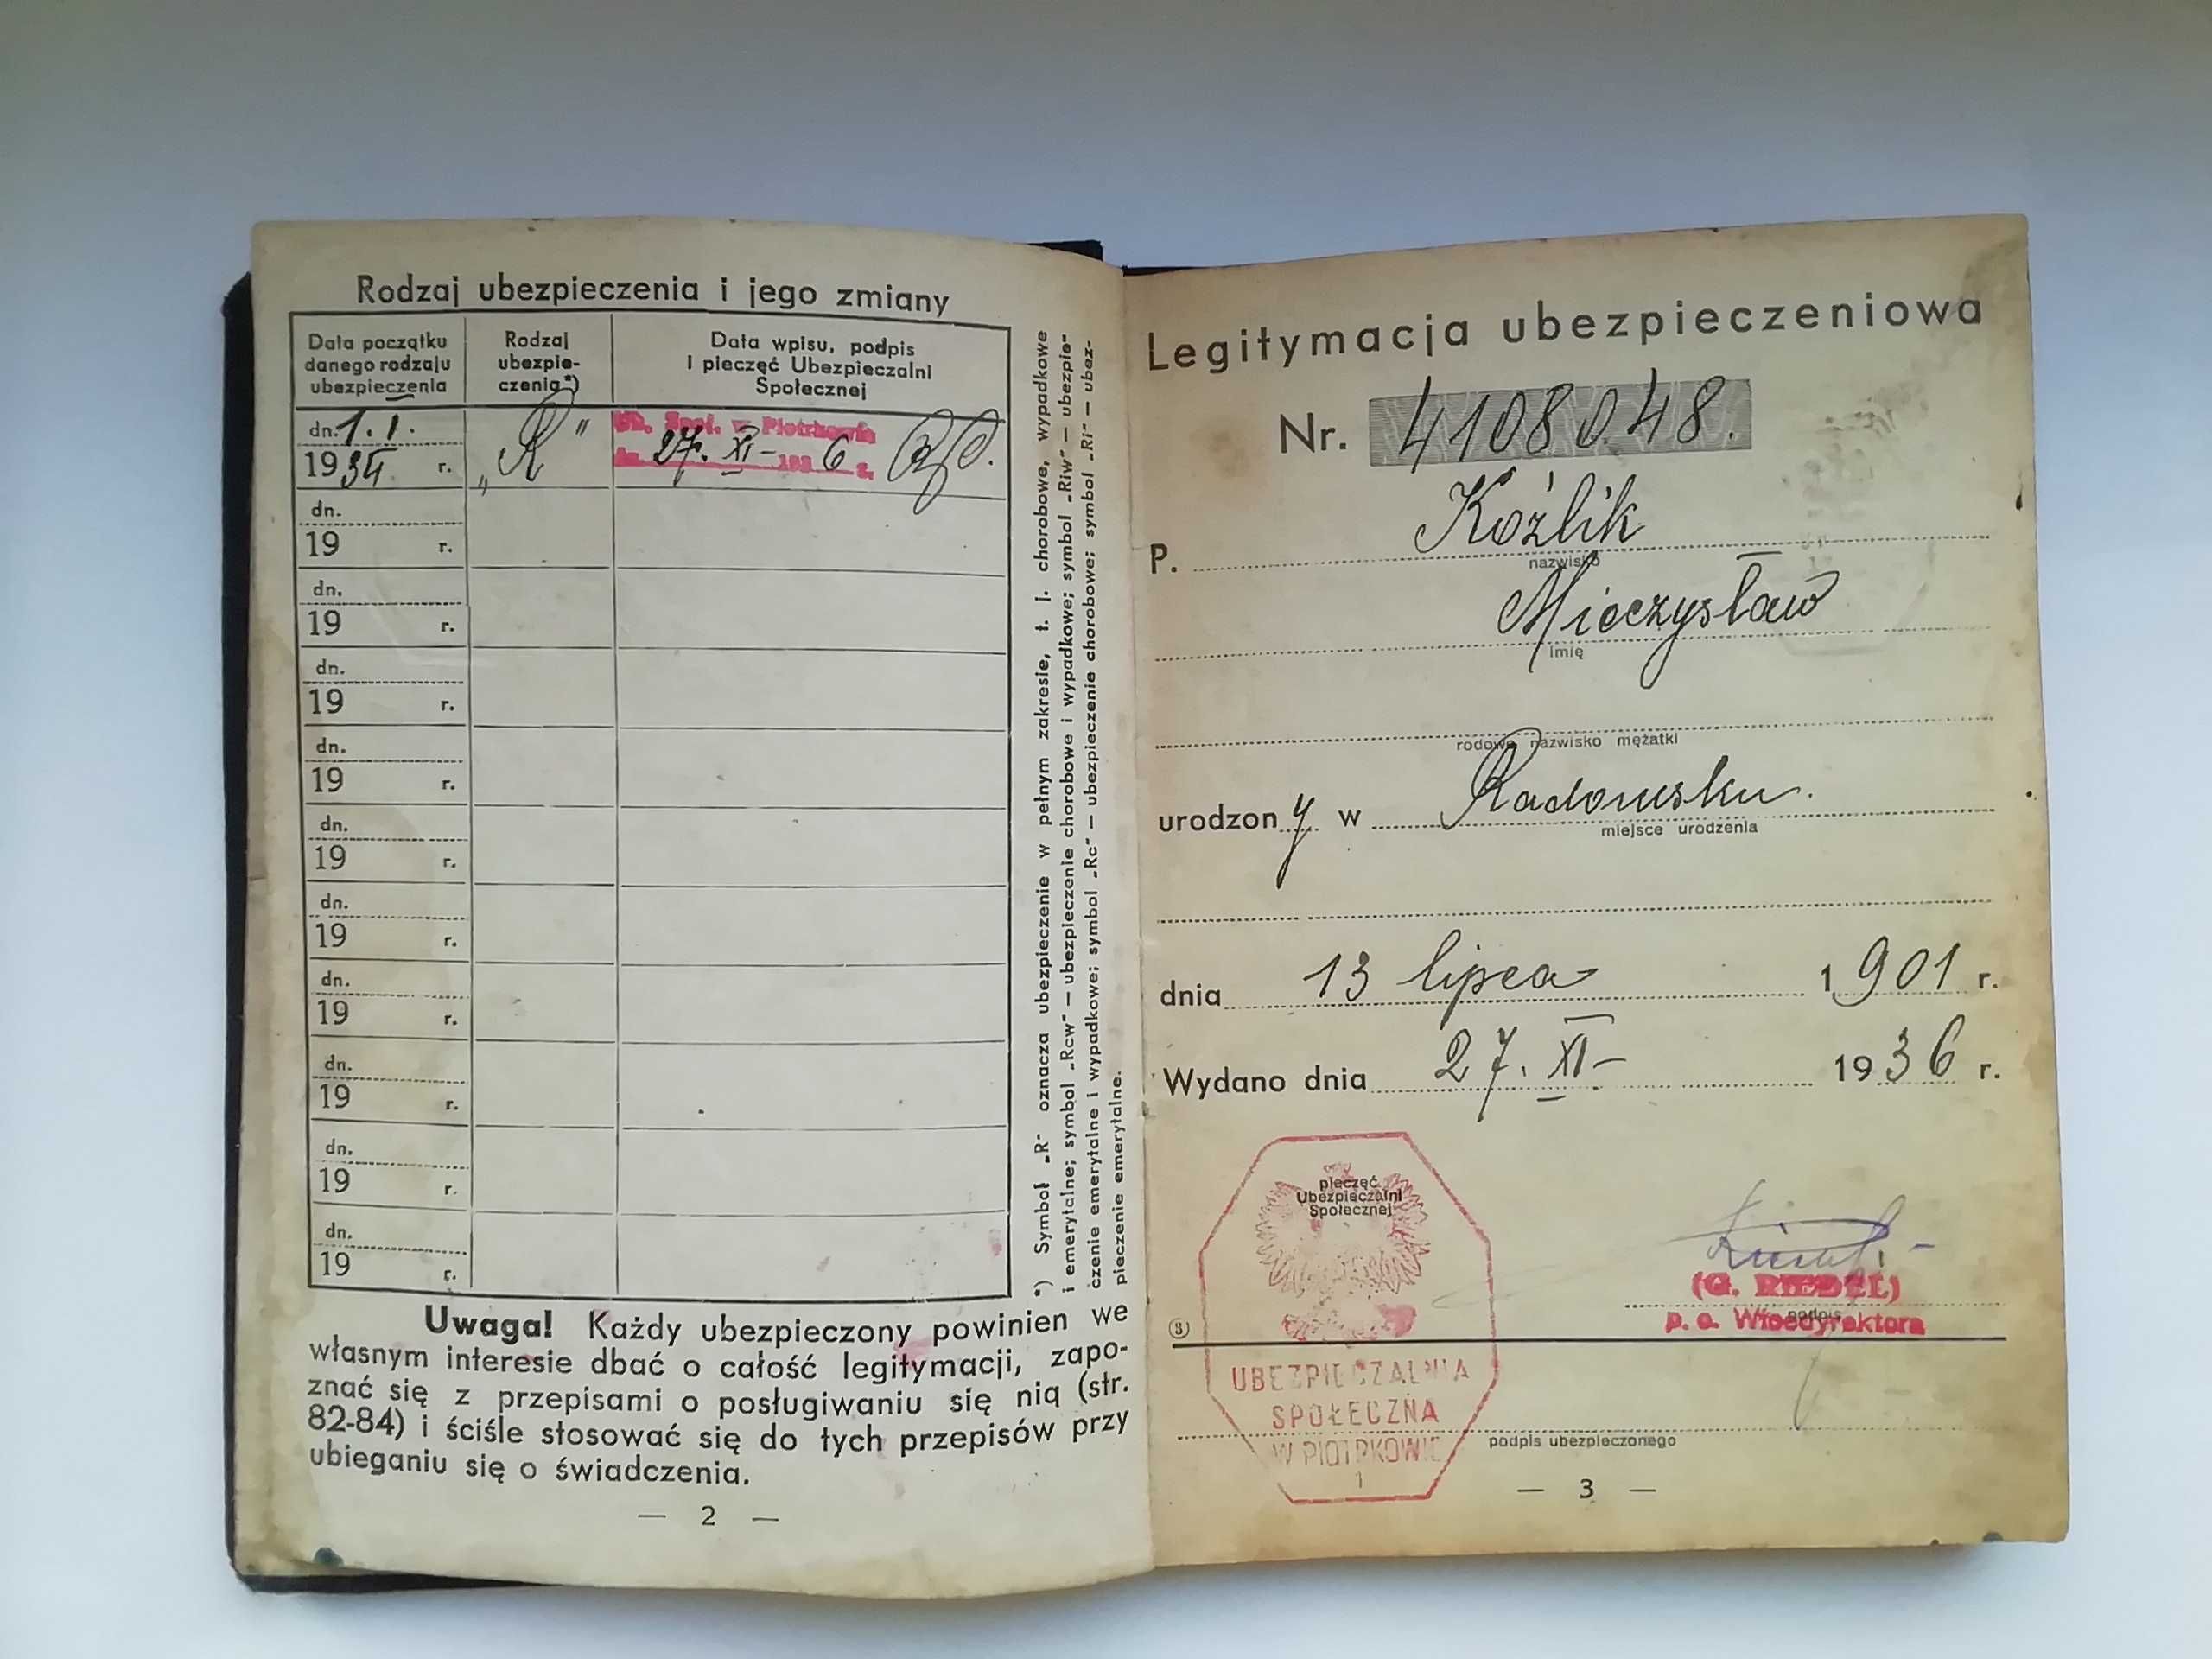 Rodzaj ubezpieczenia i jego zmiany
Data początku
danego rodzaju
ubezpieczenia
Rodzaj
ubezpie-
czenia*)
Data wpisu, podpis
i pieczęć Ubezpieczalni
Społecznej
dn. 1. I.
1934. r.
„R"
Ub. Społ. w Piotrkowie
dn. 27. XI- 1936 r.
dn.
19 r.
dn.
19 r.
dn.
19 r.
dn.
19 r.
dn.
19 r.
dn.
19 r.
dn.
19 r.
dn.
19 r.
dn.
19 r.
dn.
19 r.
*) Symbol „R- oznacza ubezpieczenie w pełnym zakresie, t. j. chorobowe, wypadkowe
i emerytalne; symbol „Rcw" — ubezpieczenie chorobowe i wypadkowe; symbol „Riw" — ubezpie-
czenie emerytalne i wypadkowe; symbol „Rc" — ubezpieczenie chorobowe; symbol „Ri" — ubez-
pieczenie emerytalne.
Uwaga! Każdy ubezpieczony powinien we
własnym interesie dbać o całość legitymacji, zapo-
znać się z przepisami o posługiwaniu się nią (str.
82-84) i ściśle stosować się do tych przepisów przy
ubieganiu się o świadczenia.
— 2 —
Legitymacja ubezpieczeniowa
Nr. 4108048.
P. Koźlik
nazwisko
Mieczysław
imię
rodowe nazwisko mężatki
urodzony w Radomsku.
miejsce urodzenia
dnia 13 lipca 1901 r.
Wydano dnia 27. XI- 1936 r.
pieczęć
Ubezpieczalni
Społecznej
(G. RIEDEL)
podpis
p. o. Wicedyrektora
3
UBEZPIECZALNIA
SPOŁECZNA
W PIOTRKOWIE
1
podpis ubezpieczonego
— 3 —